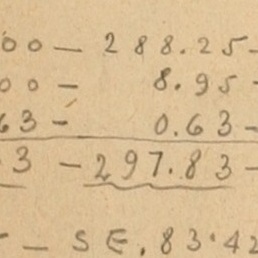 00 — 288.25 -
00 - 8.95 -
63 - 0.63 -
3 - 297.83 -
- — SE. 83.42